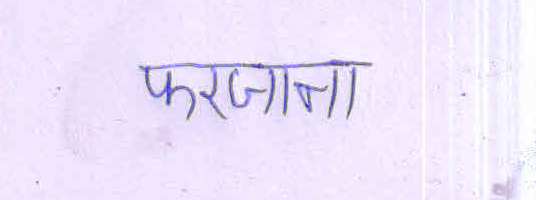 फरजाना